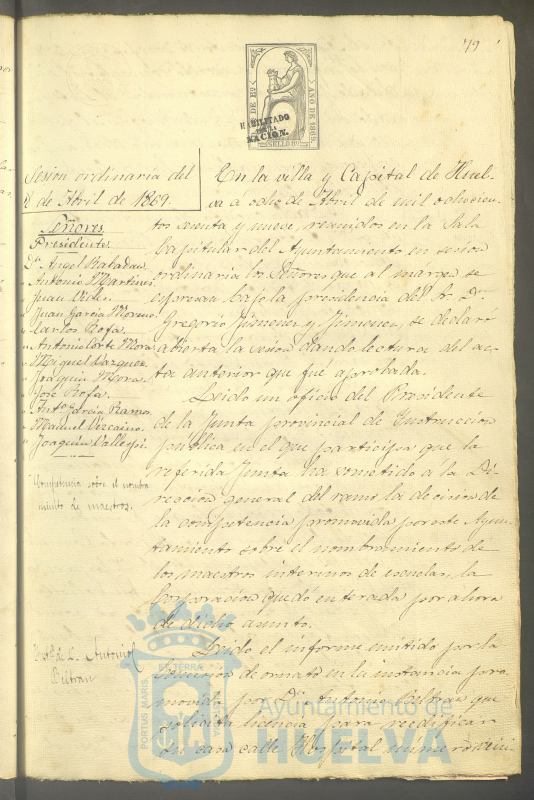 79
DE Eº.
AÑO DE 1869.
HABILITADO
POR LA
NACION.
SELLO 9º
Sesion ordinaria del
8 de Abril de 1869.
Señores
Presidente
Dn. Angel Rabadan
" Antonio Martinez
" Juan Vides
" Juan Garcia Moreno
" Carlos Rofa
" Antonio Corte Mora
" Miguel Vazquez
" Joaquin Mora
" José Rofa
" Antº Garcia Ramos
" Manuel Vizcaino
" Joaquin Vallejo
Competencia sobre el nombra
miento de maestros.
de D. Antonio
Beltran
En la villa y Capital de Huel-
va a ocho de Abril de mil ochocien-
tos sesenta y nueve, reunidos en la Sala
Capitular del Ayuntamiento en sesion
ordinaria los Señores que al márgen se
espresan, bajo la presidencia del Sr. Dn.
Gregorio Jimenez y Jimenez, se declaró
abierta la sesion dando lectura del ac-
ta anterior que fue aprobada.
Leido un oficio del Presidente
de la Junta provincial de Instruccion
publica en el que participa que la
referida Junta ha sometido á la Di-
reccion general del ramo la decision de
la competencia promovida por este Ayun-
tamiento sobre el nombramiento de
los maestros interinos de escuelas, la
Corporacion quedó enterada por ahora
de dicho asunto.
Leido el informe emitido por la
Seccion de ornato en la instancia pro-
movida por Dn. Antonio Beltran que
solicita licencia para reedificar
su casa calle Hospital numero vein-
PORTUS MARIS
ET TERRÆ
Ayuntamiento de
HUELVA